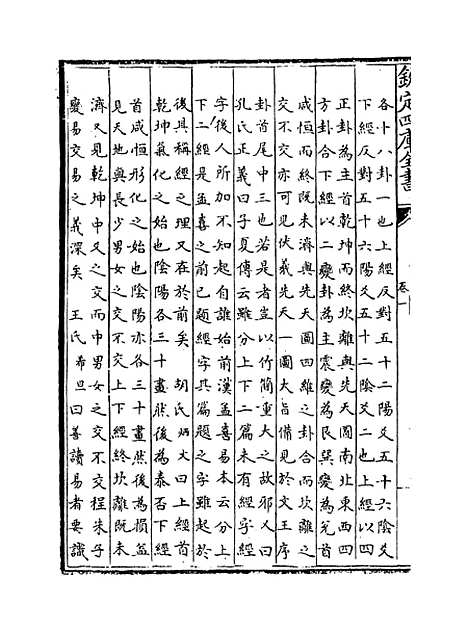 欽定四庫全書
卷一
各十八卦一也上經反對五十二陽爻五十六陰爻
下經反對五十六陽爻五十二陰爻二也上經以四
正卦為主首乾坤而終坎離與先天圓南北東西四
方卦合下經以二變卦為主震變為艮巽變為兌首
咸恒而終既未濟與先天圖四維之卦合而坎離之
交不交亦可見伏羲先天一圖大旨備見於文王序
卦首尾中三也若是者豈以竹簡重大之故邪人曰
孔氏正義曰子夏傳云雖分上下二篇未有經字經
字後人所加不知起自誰始前漢孟喜易本云分上
下二經是孟喜之前已題經字其篇題之字雖起於
後其稱經之理又在於前矣 胡氏炳文曰上經首
乾坤氣化之始也陰陽各三十畫然後為泰否下經
首咸恒形化之始也陰陽亦各三十畫然後為損益
見天地與長少男女之交不交上下經終坎離既未
濟又見乾坤中爻之交而中男女之交不交程朱子
變易交易之義深矣 王氏希旦曰善讀易者要識